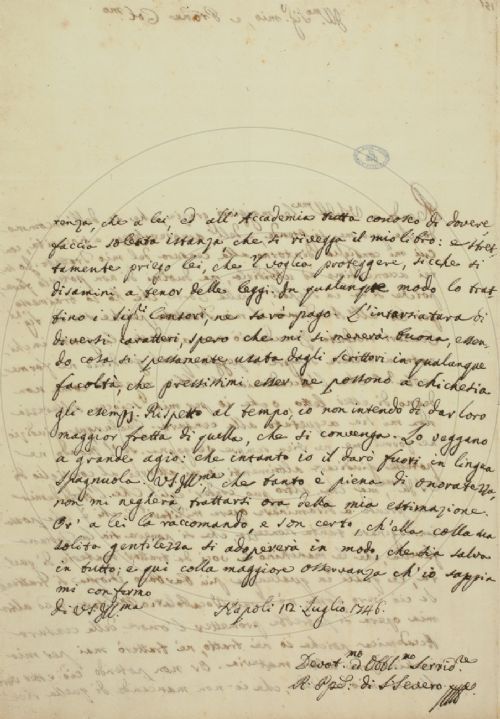 renza, che a lei, ed all'Accademia tutta conosco di dovere
faccia solenne istanza, che si rivegga il mio libro: e stret-
tamente priego lei, che 'l voglia proteggere, sicche si
disamini a tenor delle leggi. In qualunque modo lo trat-
tino i Sigri Censori, ne sarò pago. L'intarsiatura di
diversi caratteri, spero che mi si menerà buona, essen-
do cosa sì spessamente usata dagli scrittori in qualunque
facoltà, che prestissimi esser ne possono a chichesia
gli esempj. Rispetto al tempo, io non intendo di dar loro
maggior fretta di quella, che si convenga. Lo veggano
a grande agio: che intanto io il darò fuori en lingua
Spagnuola. VS Illma, che tanto è piena di onoratezza,
non mi negherà, trattarsi ora della mia estimazione.
Or' a lei la raccomando, e son certo, ch'ella colla sua
solita gentilezza si adopererà in modo, che sia salva
in tutto; e qui colla maggiore osservanza ch'io sappia
mi confermo
di VS Illma
Napoli 12 Luglio 1746.
Devotmo ed Obblmo Servidre
di S Severo